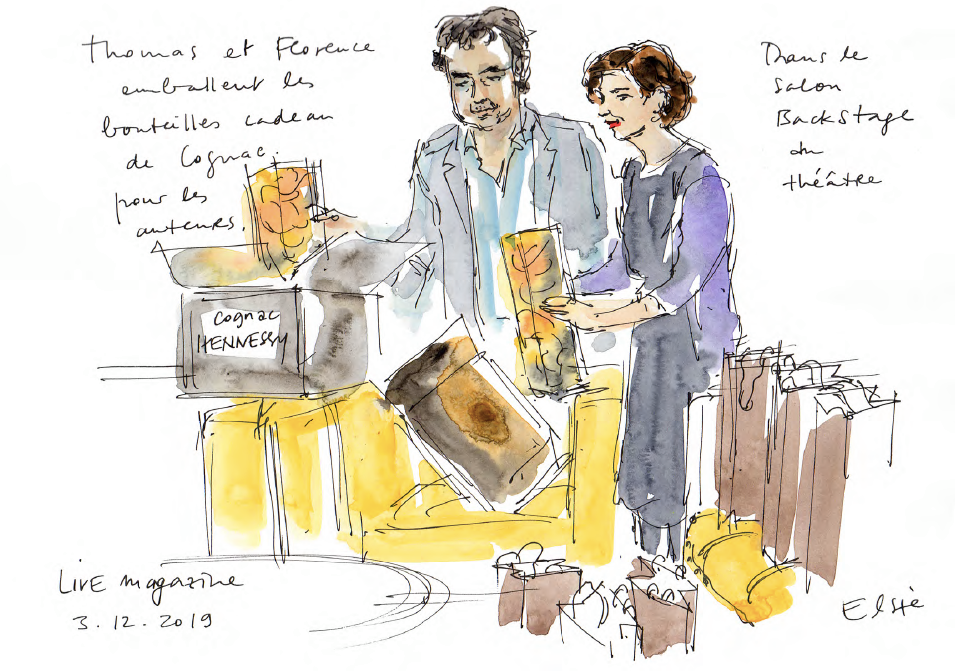 Thomas et Florence
emballent les
bouteilles cadeau
de Cognac.
pour les
auteurs.
Dans le
Salon
BackStage
du
théâtre
cognac
HENNESSY
LivE magazine
3.12.2019
Elsie